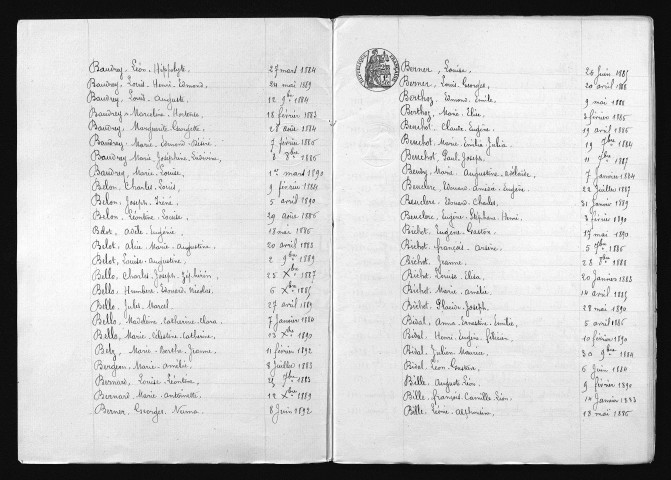 Baudrey, Léon, Hippolyte. 27 mars 1884
Baudrey, Louis, Henri, Edmond. 24 mai 1889
Baudrey, Louis, Auguste. 12 9bre 1884
Baudrey, Marceline, Hortense. 18 février 1883
Baudrey, Marguerite, Georgette. 28 août 1884
Baudrey, Marie, Edmond, Désiré. 7 février 1886
Baudrey, Marie, Joséphine 1886
Baudrey, Marie, Louise. 1er mars 1890
Belon, Charles, Louis. 9 février 1884
Belon, Joseph, Irené. 5 avril 1890
Belon, Léontine, Louise. 29 août 1886
Belot, Adèle, Eugénie. 18 mai 1886
Belot, Alice, Marie, Augustine. 20 avril 1883
Belot, Louise, Augustine. 2 9bre 1889
Bello, Charles, Joseph 25 Xbre 1887
Bello, Humbert, Edouard, Nicolas. 6 Xbre 1885
Bello, Jules, Marcel. 27 avril 1889
Bello, Madeleine, Catherine, Clara. 7 Janvier 1884
Bello, Marie, Célestine, Catherine. 13 Xbre 1890
Belz, Marie, Berthe, Jeanne. 11 février 1892
Bergion, Marie, Amélie. 8 Juillet 1883
Bernard, Louise, Léontine. 1883
Bernard, Marie, Antoinette. 12 Xbre 1889
Berner, Georges, Numa. 8 Juin 1892
Berner, Louise. 26 Juin 1885
Berner, Louis, Georges. 20 avril 1886
Berthoz, Edmond, Emile. 9 mai 1886
Berthoz, Marie, Elise. 3 février 1885
Beuchot, Claude, Eugène. 19 avril 1886
Beuchot, Marie, Emilie, Julia. 19 7bre 1884
Beuchot, Paul, Joseph. 11 7bre 1887
Beudy, Marie, Augustine, Adélaïde. 7 Janvier 1884
Beuclere, Edouard, Amédée, Eugène. 22 Juillet 1887
Beuclere, Edouard, Charles. 31 Janvier 1889
Beuclere, Eugène, Stéphane, Henri. 3 février 1890
Bichet, Eugène, Gaston. 17 mai 1890
Bichet, François, Arsène. 5 7bre 1886
Bichet, Jeanne. 28 8bre 1888
Bichet, Louise, Elisa. 20 Janvier 1883
Bichet, Marie, Amélie. 14 avril 1885
Bichet, Placide, Joseph. 28 mai 1890
Bidal, Anna, Ernestine, Emilie. 5 avril 1886
Bidal, Henri, Eugène, Félicien. 10 février 1890
Bidal, Julien, Maurice. 30 9bre 1884
Bidal, Léon, Gustave. 6 Juin 1884
Bille, Auguste, Léon. 9 février 1890
Bille, François, Camille, Léon. 14 Janvier 1883
Bille, Léonie, Alphonsine. 13 mai 1886